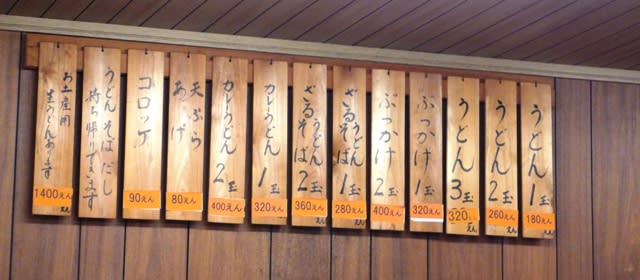 うどん 1玉
180えん
うどん 2玉
260えん
うどん 3玉
320えん
ぶっかけ 1玉
320えん
ぶっかけ 2玉
400えん
ざるうどん
ざるそば 1玉
280えん
ざるうどん
ざるそば 2玉
360えん
カレーうどん 1玉
320えん
カレーうどん 2玉
400えん
天ぷら
あげ
80えん
コロッケ
90えん
うどん そば だし
持ち帰りできます
お土産用
生うどんあります
1400えん